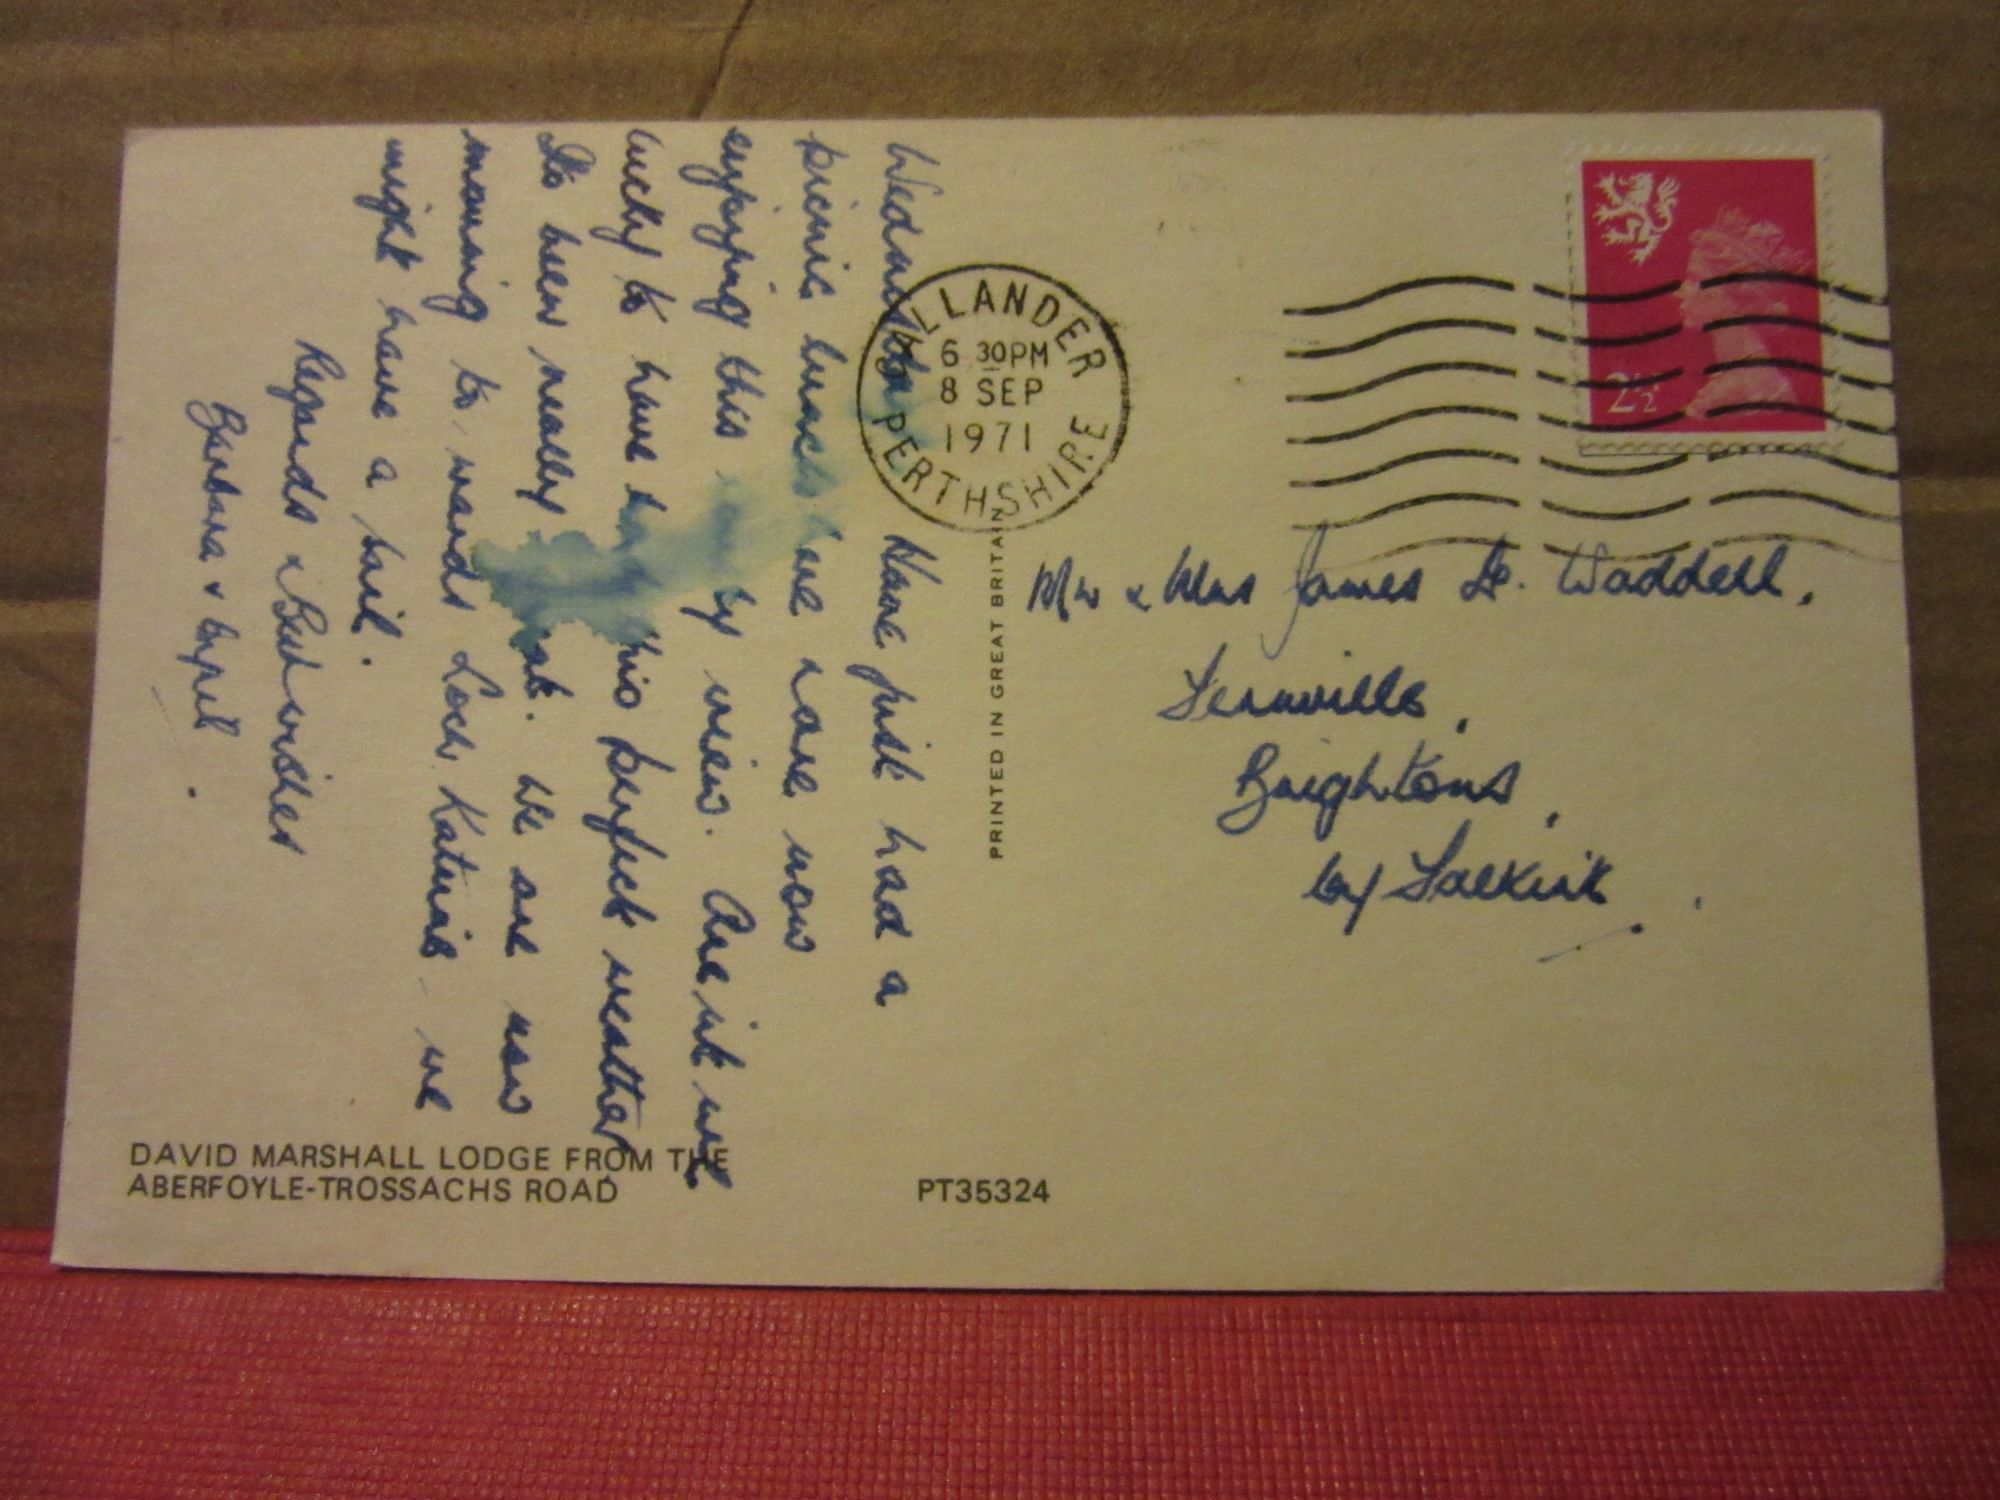 Wednesday Have just had a
picnic lunch we are now
enjoying this by view. Aren't we
lucky to have this perfect weather
Its been really We are now
moving to wards Loch Katrine we
might have a sail.
Regards & Best wishes
Barbara & April.
CALLANDER
6 30PM
8 SEP
1971
PERTHSHIRE
2½
PRINTED IN GREAT BRITAIN
Mr & Mrs James Waddell.
Fernville,
Brightons,
by Falkirk.
DAVID MARSHALL LODGE FROM THE
ABERFOYLE-TROSSACHS ROAD
PT35324